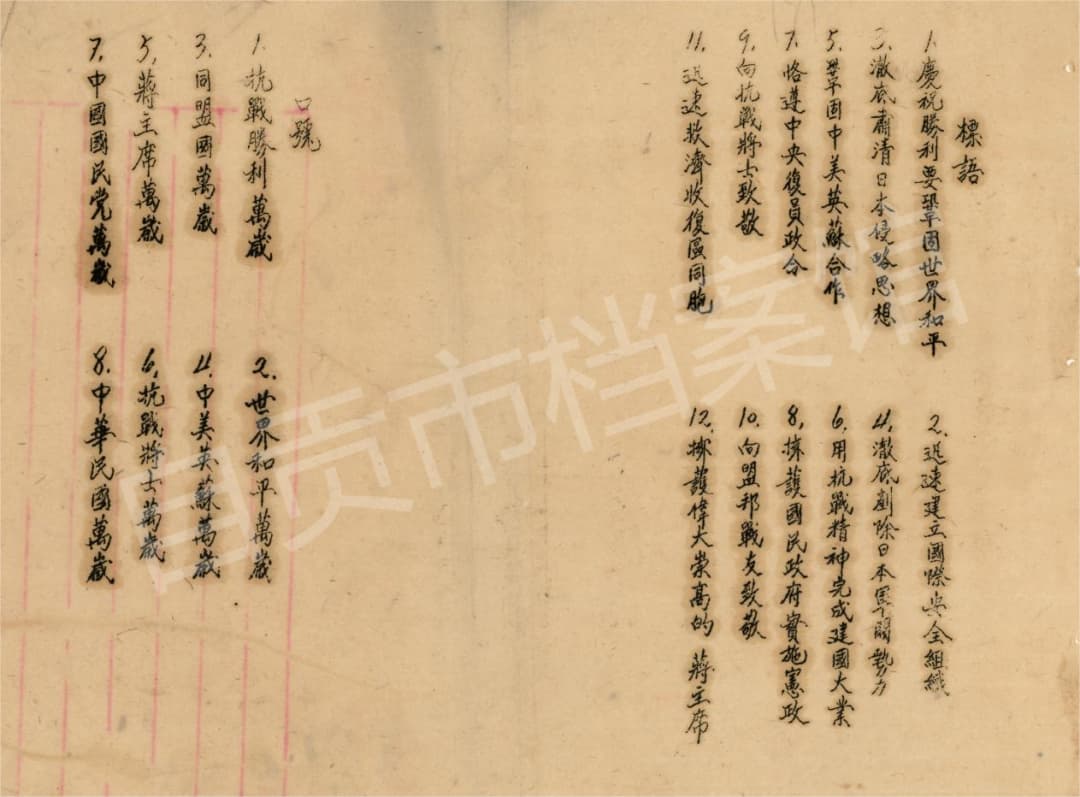 標語
1. 慶祝勝利要鞏固世界和平
2. 迅速建立國際安全組織
3. 澈底肅清日本侵略思想
4. 澈底剷除日本軍閥勢力
5. 鞏固中美英蘇合作
6. 用抗戰精神完成建國大業
7. 恪遵中央復員政令
8. 擁護國民政府實施憲政
9. 向抗戰將士致敬
10. 向盟邦戰友致敬
11. 迅速救濟收復區同胞
12. 擁護偉大崇高的 蔣主席
口號
1. 抗戰勝利萬歲
2. 世界和平萬歲
3. 同盟國萬歲
4. 中美英蘇萬歲
5. 蔣主席萬歲
6. 抗戰將士萬歲
7. 中國國民党萬歲
8. 中華民國萬歲
自贡市档案馆